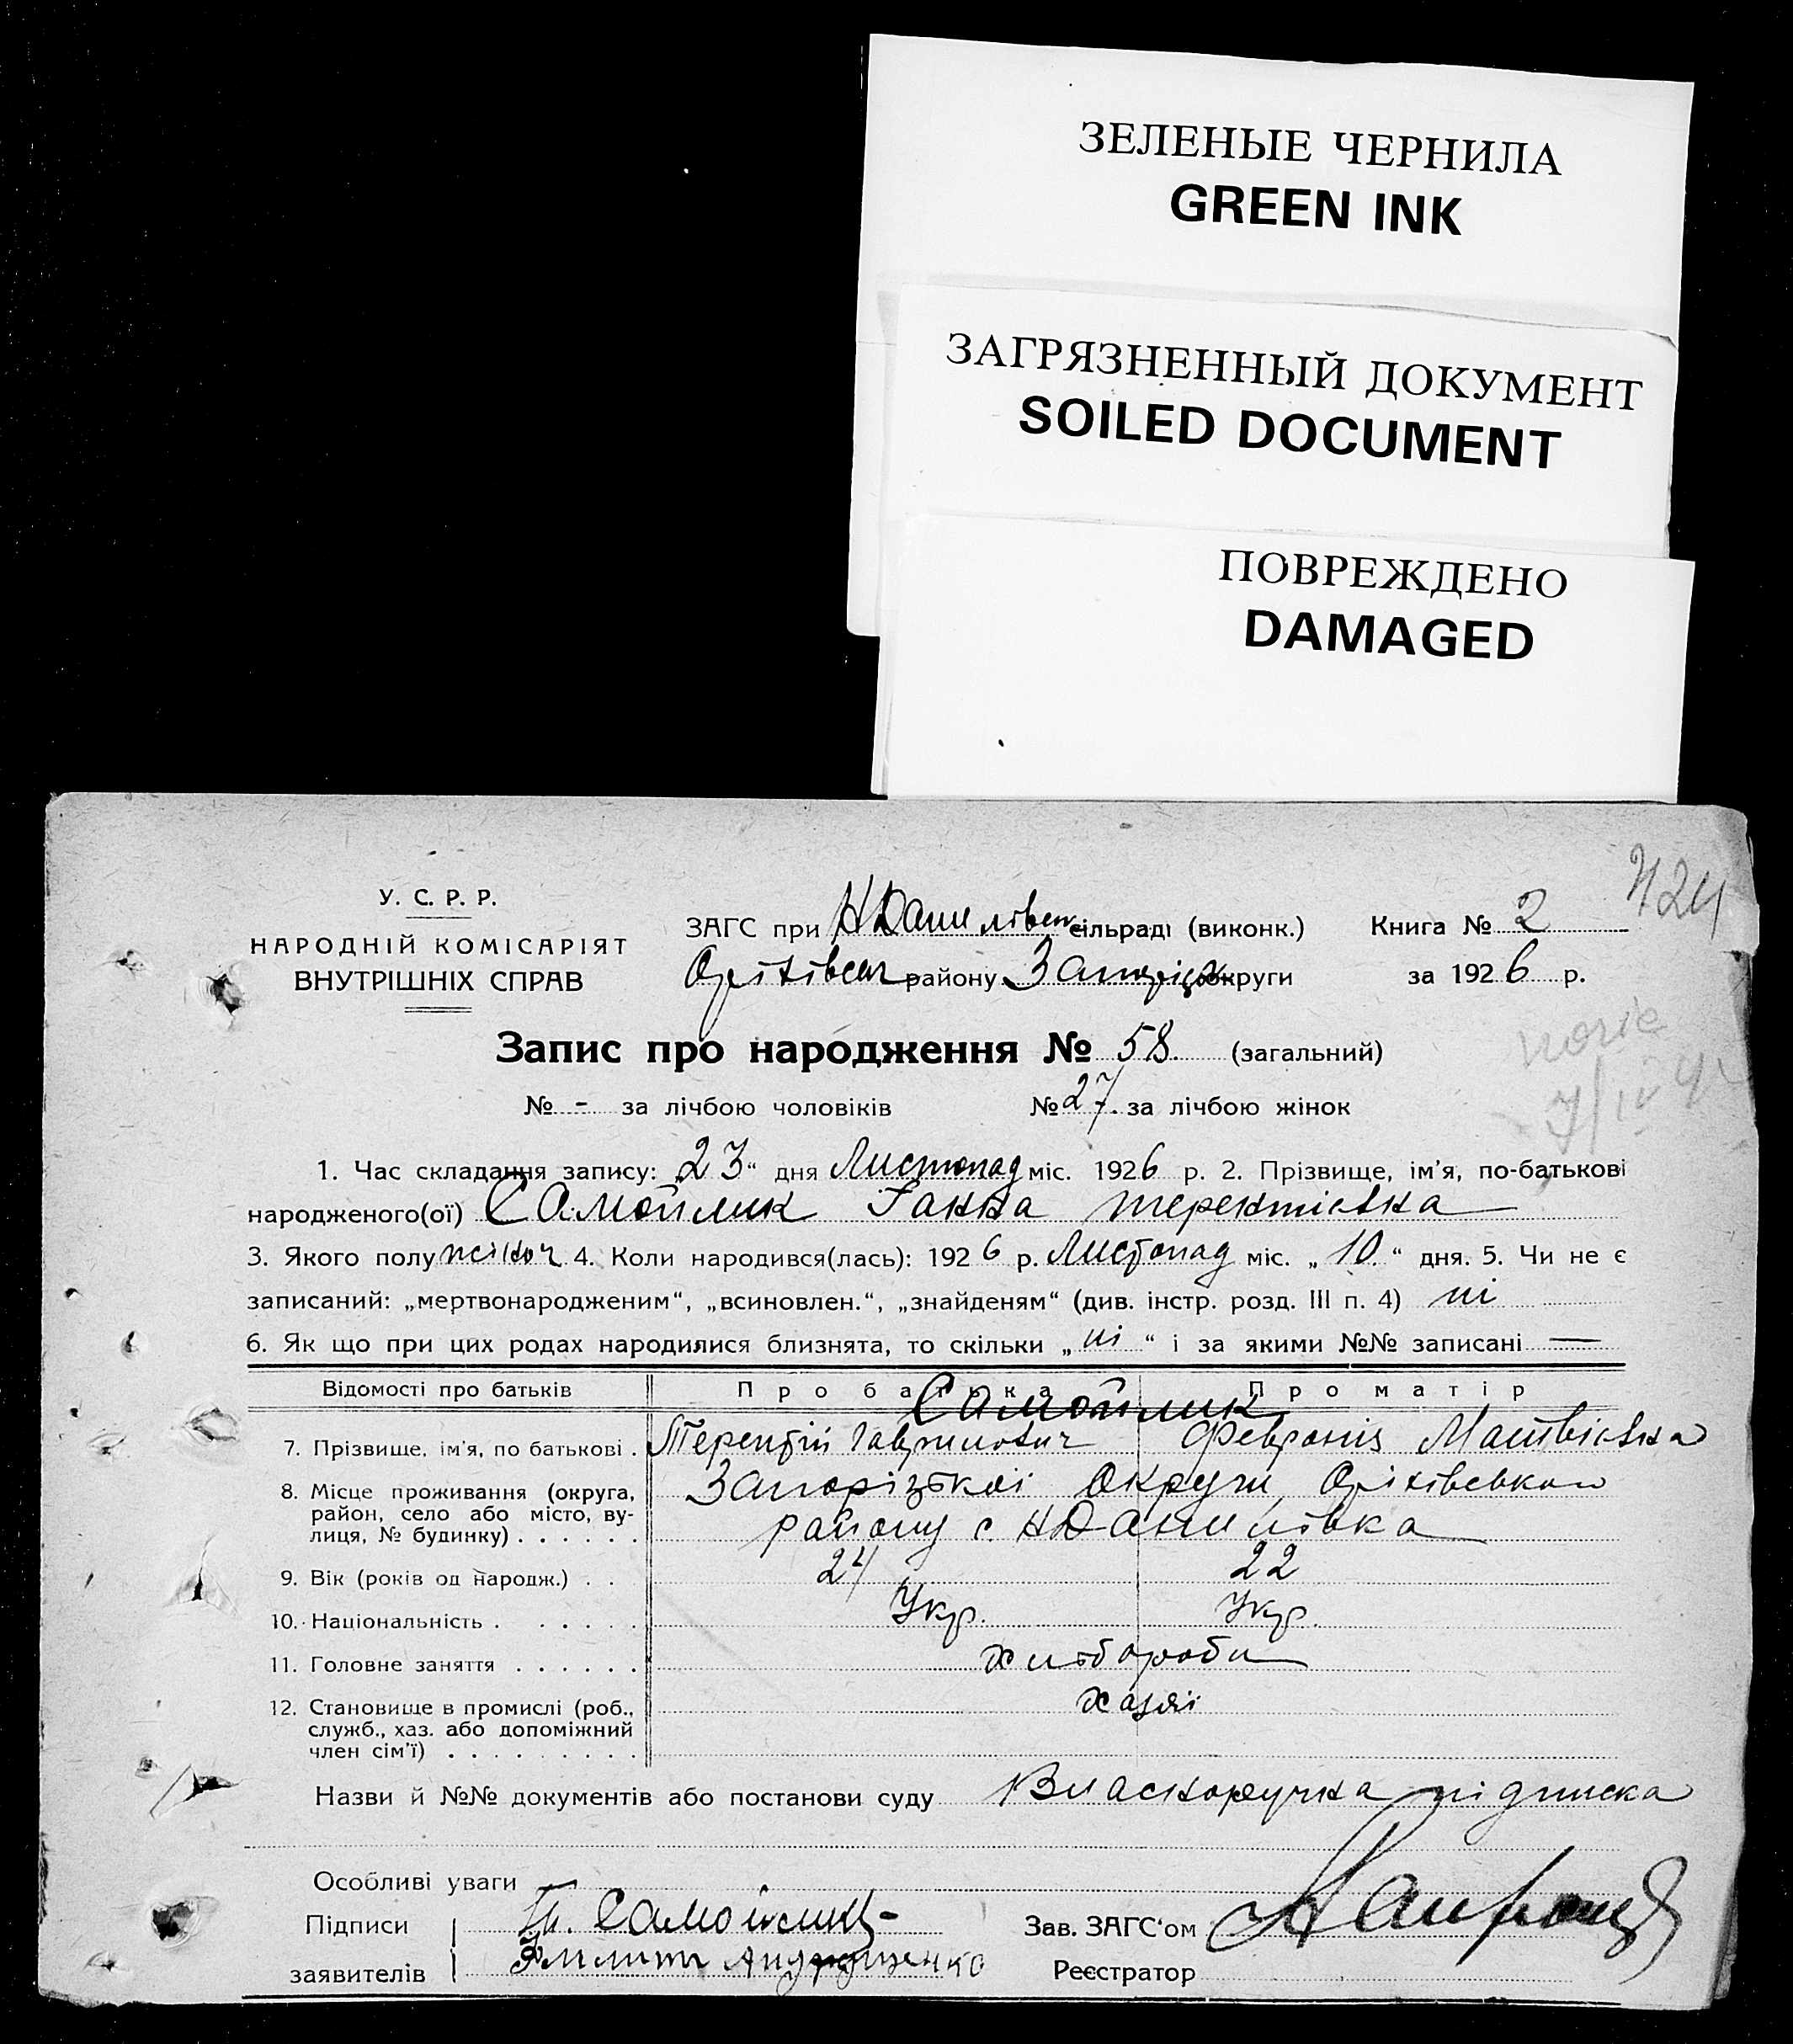 ЗЕЛЕНЫЕ ЧЕРНИЛА
GREEN INK
ЗАГРЯЗНЕННЫЙ ДОКУМЕНТ
SOILED DOCUMENT
ПОВРЕЖДЕНО
DAMAGED
424
У. С. Р. Р.
НАРОДНІЙ КОМІСАРІЯТ
ВНУТРІШНІХ СПРАВ
ЗАГС при НДанилівськ сільраді (виконк.) Книга № 2
Оріхівськ району Запоріцк округи за 1926 р.
Запис про народження № 58 (загальний)
№ - за лічбою чоловіків № 27 за лічбою жінок
1. Час складання запису: „23“ дня Листопад міс. 1926 р. 2. Прізвище, ім’я, по-батькові
народженого(ої) Самойлик Ганна терентіївна
3. Якого полу жіноч 4. Коли народився(лась): 1926 р. Листопад міс. „10“ дня. 5. Чи не є
записаний: „мертвонародженим“, „всиновлен.“, „знайденям“ (див. інстр. розд. III п. 4) ні
6. Як що при цих родах народилися близнята, то скільки „ні“ і за якими №№ записані —
Відомості про батьків Про батька Про матір
Самойлик
7. Прізвище, ім’я, по батькові . Терентій Гаврилович Февронія Матвіївна
8. Місце проживання (округа, Запорізької Округи, Оріхівського
район, село або місто, ву-
лиця, № будинку) . . . . . . району с. НДанилівка
9. Вік (років од народж.) . . 24 22
10. Національність . . . . . . Укр. Укр.
11. Головне заняття . . . . . . хлібороби
12. Становище в промислі (роб., хазяї
служб., хаз. або допоміжний
член сім’ї) . . . . . . . . .
Назви й №№ документів або постанови суду Власноручна підписка
Особливі уваги
Підписи Т. Самойлик Зав. ЗАГС‘ом
заявителів Филипп Андрющенко Реєстратор